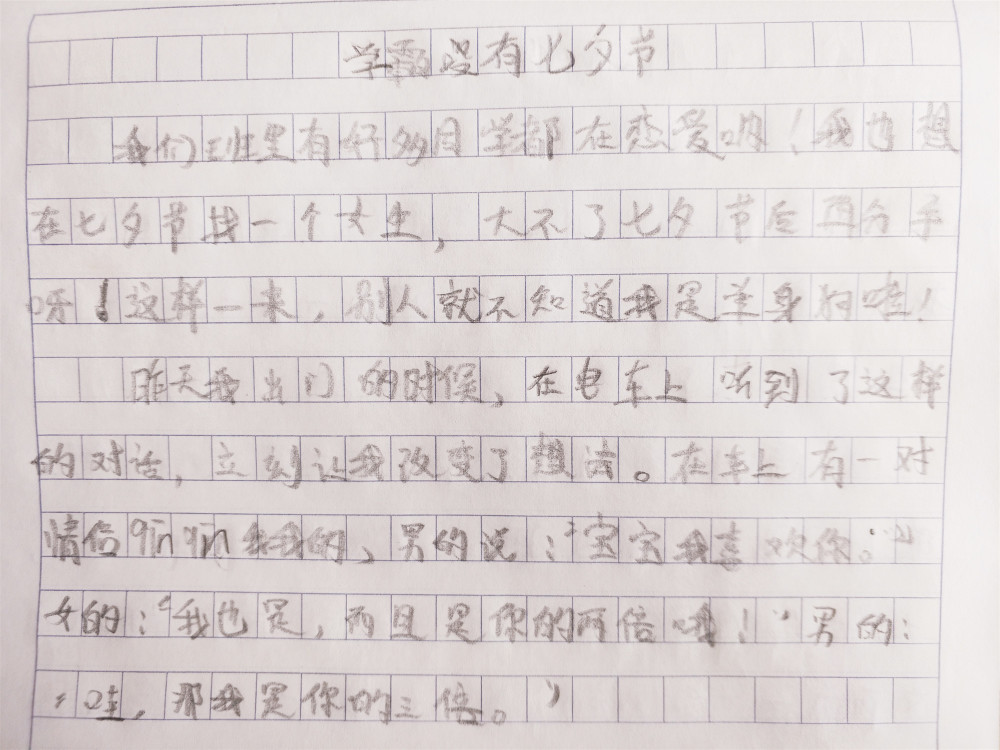 学霸没有七夕节
我们班里有好多同学都在恋爱呐！我也想
在七夕节找一个女生，大不了七夕节后再分手
呀！这样一来，别人就不知道我是单身狗啦！
昨天我出门的时候，在电车上听到了这样
的对话，立刻让我改变了想法。在车上有一对
情侣qīnqīn我我的，男的说：“宝宝我喜欢你。”
女的：“我也是，而且是你的两倍哦！”男的：
“哇，那我是你的三倍。”